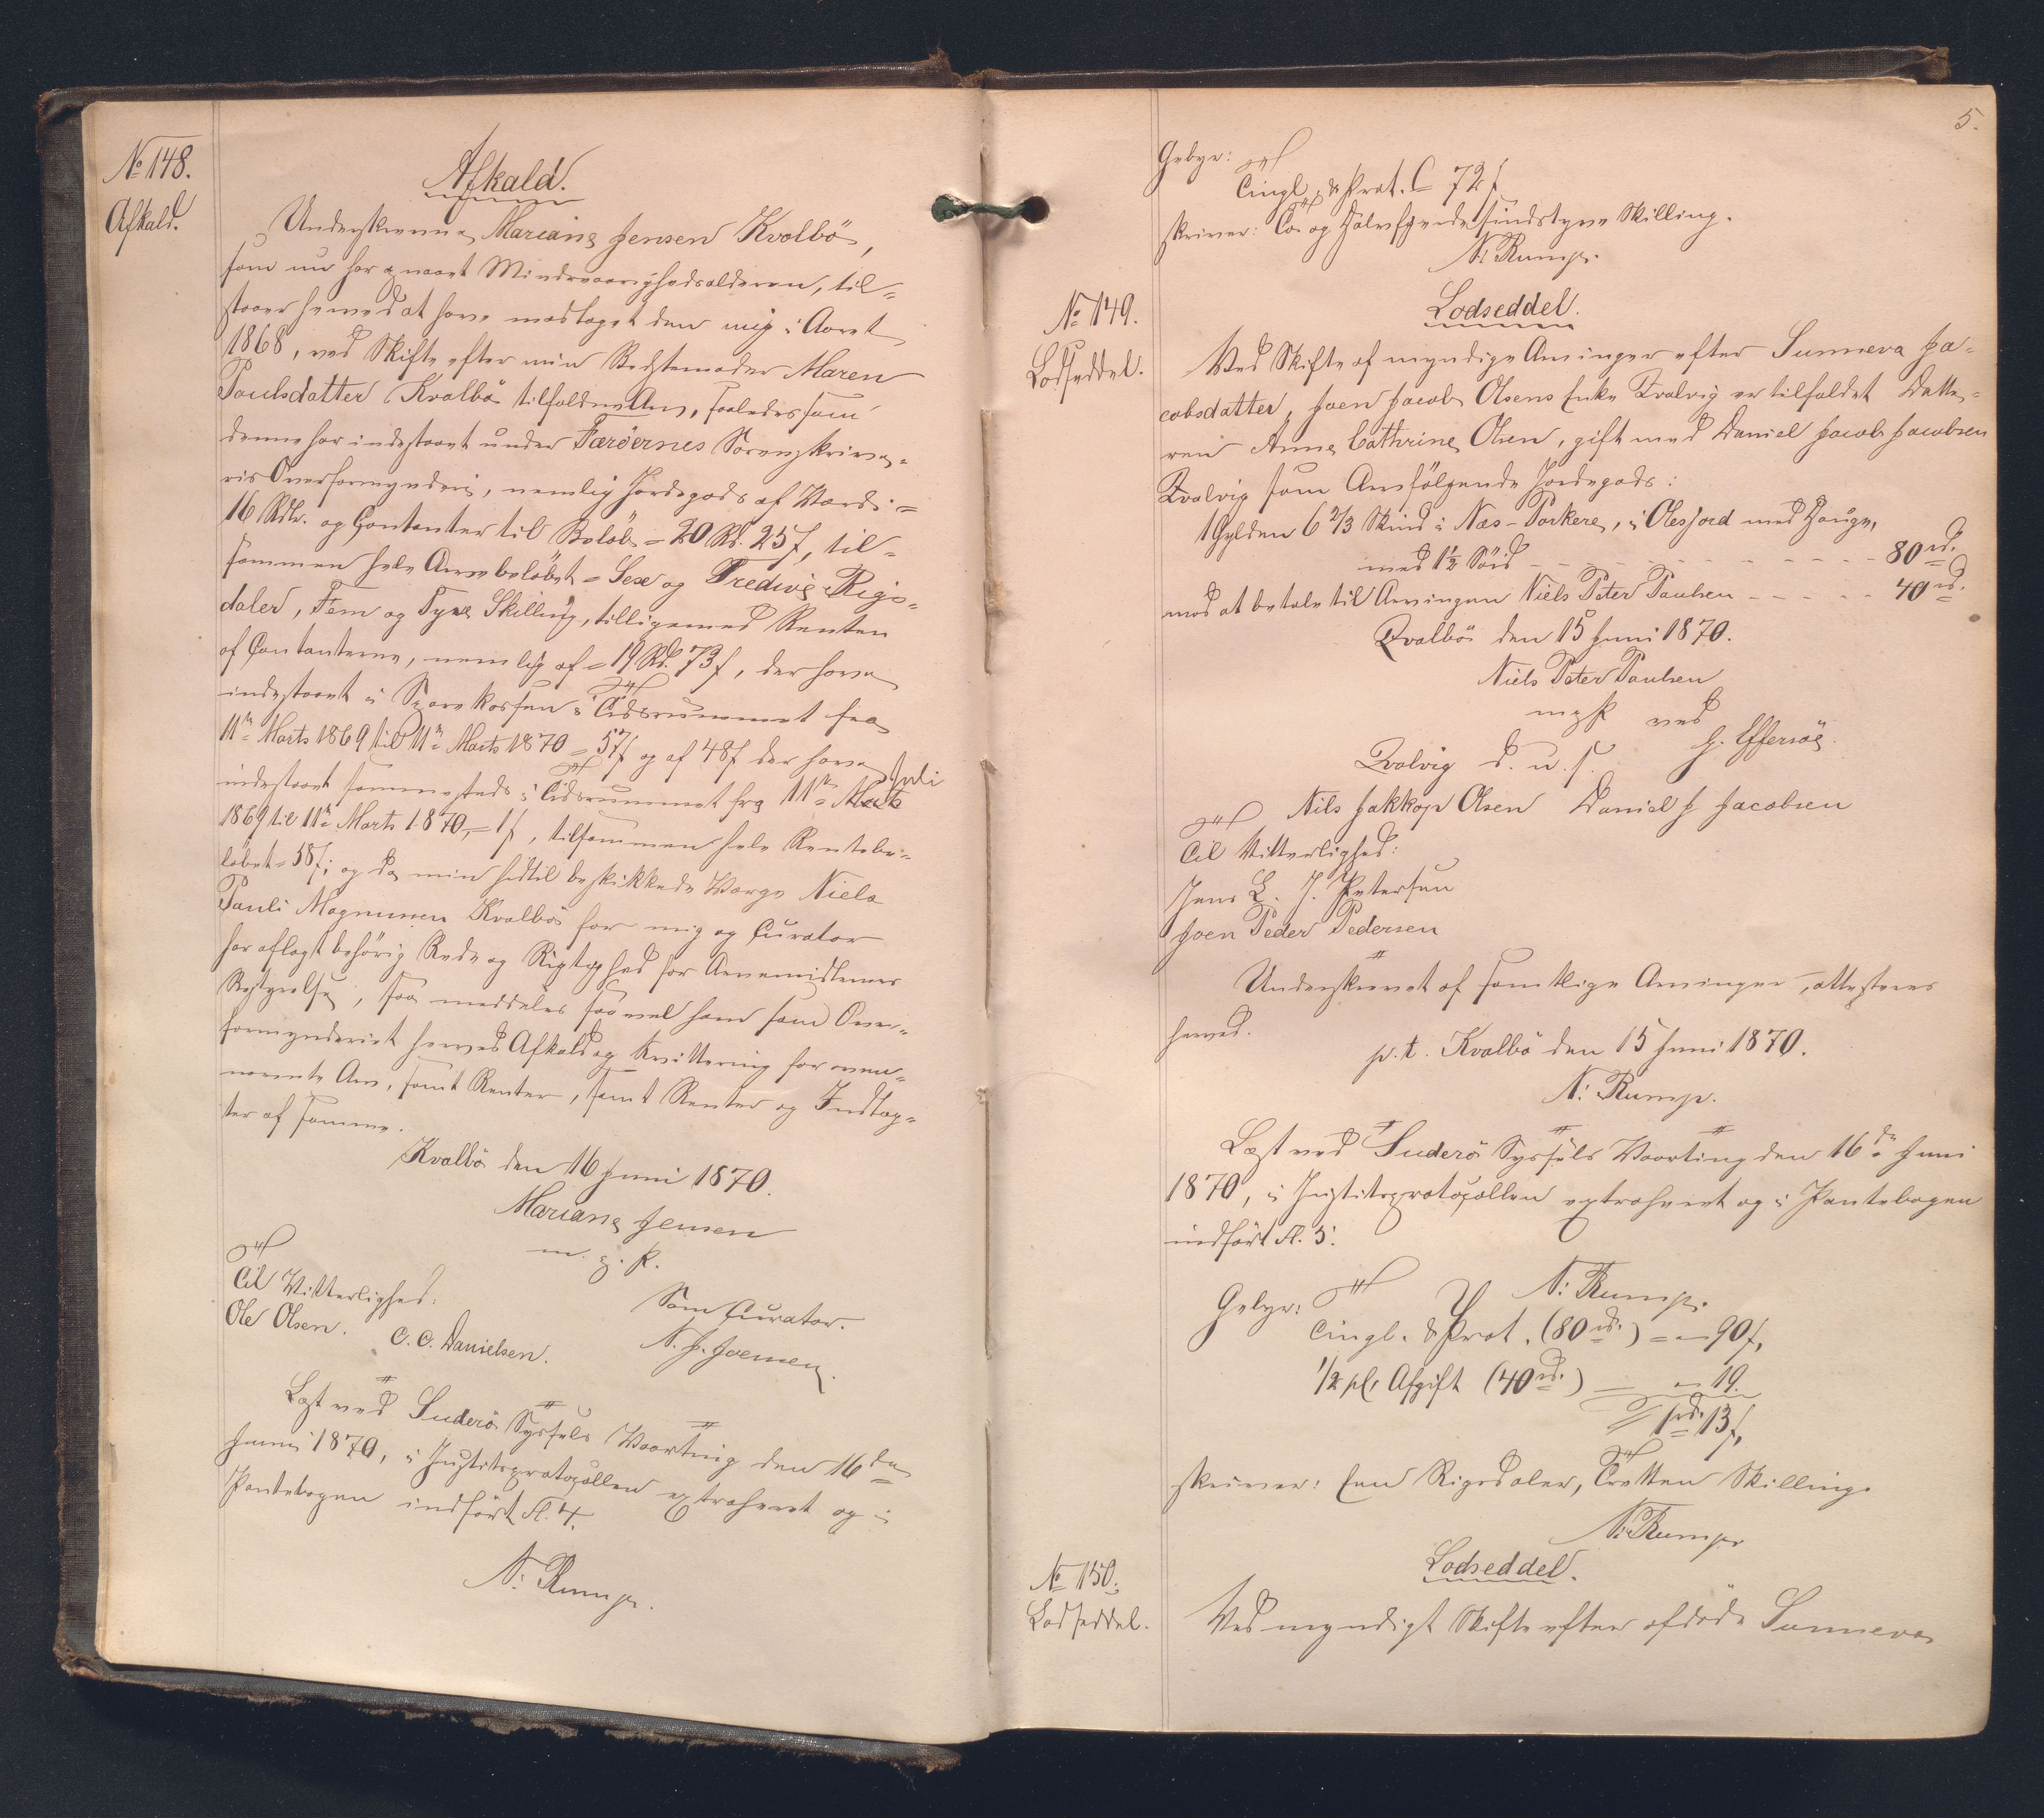 No 148.
Afkald.
Afkald.
Underskrevne Mariane Jensen Kvalbø,
som nu har naaet Mindreaarighedsalderen, til-
staaer herved at have modtaget den mig i Aaret
1868, ved Skifte efter min Bedstemoder Maren
Poulsdatter Kvalbø tilfaldne Arv, saaledes som
denne har indestaaet under Færøernes Sorenskrive-
ris Overformynderi, nemlig Jordegods af Værdi =
16 Rdlr. og Contanter til Beløb = 20 Rd. 25 s, til-
sammen hele Arvebeløbet = Sex og Tredive Rigs-
daler, Fem og Tyve Skilling, tilligemed Renten
af Contanterne, nemlig af = 19 Rd. 73 s, der have
indestaaet i Sparekassen i Tidsrummet fra
11te Marts 1869 til 11te Marts 1870 = 57 s og af 48 s der have
indestaaet sammesteds i Tidsrummet fra 11te Marts Juli
1869 til 11te Marts 1870, = 1 s, tilsammen hele Rentebe-
løbet = 58 s; og da min hidtil beskikkede Værge Niels
Pauli Magnussen Kvalbø for mig og Curator
har aflagt behørig Rede og Rigtighed for Arvemidlernes
Bestyrelse, saa meddeles saavel ham som Over-
formynderiet herved Afkald og Kvittering for oven-
nævnte Arv, samt Renter, samt Renter og Indtæg-
ter af samme.
Kvalbø den 16 Juni 1870.
Mariane Jensen
m. p. P.
Til Vitterlighed:
Som Curator.
Ole Olsen. C. C. Danielsen.
N. J. Joensen.
Læst ved Suderø Syssels Vaarting den 16de
Junni 1870, i Justitsprotocollen extraheret og i
Pantebogen indført fl. 4.
N: Rump.
5.
Gebyr:
Tingl. & Prot. C 72 s
skriver: To og Halvfjerdesindstyve Skilling.
N: Rump.
No 149.
Lodseddel.
Lodseddel.
Ved Skifte af myndige Arvinger efter Sunneva Ja-
cobsdatter, Joen Jacob Olsens Enke Qvalvig er tilfaldet Datte-
ren Anne Cathrine Olsen, gift med Daniel Jacob Jacobsen
Qvalvig som Arv følgende Jordegods:
1 Gylden 6 2/3 Skind i Næs-Porkere, i Olesjord med Hauge,
med 1½ Söid - - - - - - - - - - 80 rd.
mod at betale til Arvingen Niels Peter Paulsen - - - - - 40 rd.
Qvalbø den 15 Juni 1870.
Niels Peter Paulsen
m p P ved
J. Effersøe.
Qvalvig d. u. s.
Nils Jakkop Olsen Daniel J Jacobsen
Til Vitterlighed:
Jens L. J. Petersen
Joen Peder Pedersen
Underskrevet af samtlige Arvinger, attesteres
herved.
p. t. Kvalbø den 15 Juni 1870.
N: Rump.
Læst ved Suderø Syssels Vaarting den 16de Juni
1870, i Justitsprotocollen extraheret og i Pantebogen
indført fl. 5.
N: Rump.
Gebyr:
Tingl. & Prot. (80 rd.) = " 90 s,
1/2 pC. Afgift (40 rd.) — " 19.
1 rd. 13 s,
skriver: Een Rigsdaler, Tretten Skilling.
N: Rump
No 150.
Lodseddel.
Lodseddel.
Ved myndigt Skifte efter afdøde Sunneva